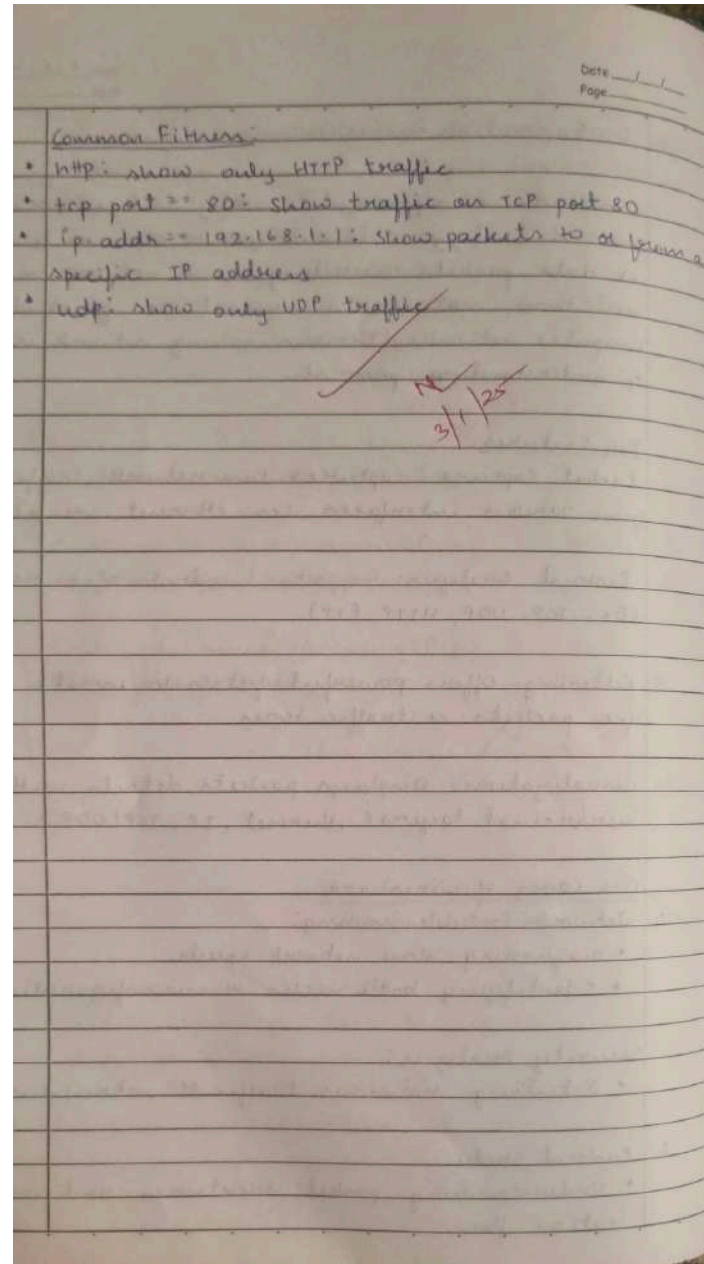 Date __/__/__
Page ______
Common Fitness:
• http: show only HTTP traffic
• tcp port == 80: show traffic on TCP port 80
• ip.addr == 192.168.1.1: show packets to or from a
specific IP address
• udp: show only UDP traffic
3/1/25